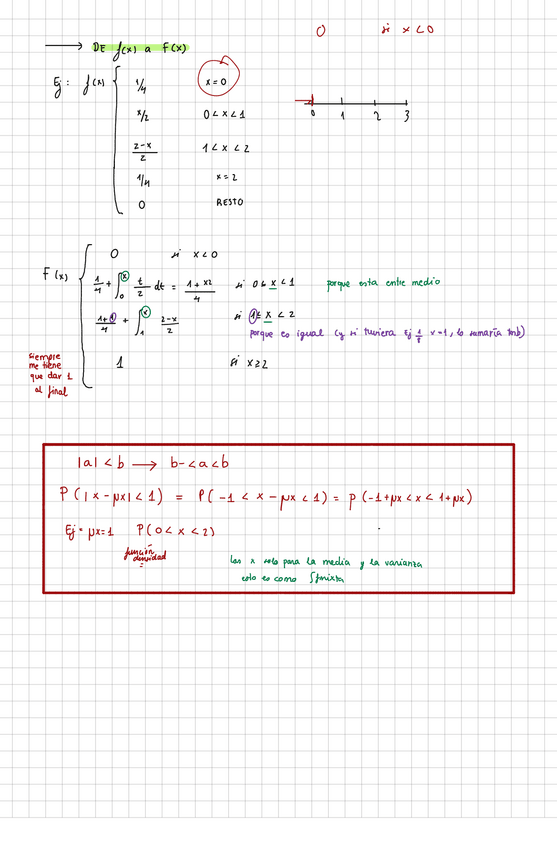 0 si x < 0
→ DE f(x) a F(x)
Ej: f(x) { 1/4 x = 0
x/2 0 < x < 1
(2-x)/2 1 < x < 2
1/4 x = 2
0 RESTO
0 1 2 3
F(x) { 0 si x < 0
1/4 + ∫₀ˣ t/2 dt = (1 + x2)/4 si 0 ≤ x < 1 porque esta entre medio
(1+1)/4 + ∫₁ˣ (2-x)/2 si 1 ≤ x < 2
porque es igual (y si tuviera Ej 1/8 x=1, lo sumaría tmb)
1 si x ≥ 2
siempre
me tiene
que dar 1
al final
|a| < b → b- < a < b
P(|x - μx| < 1) = P(-1 < x - μx < 1) = p(-1+μx < x < 1+μx)
Ej = μx=1 P(0 < x < 2)
función
densidad
las x solo para la media y la varianza
esto es como ∫fmixta